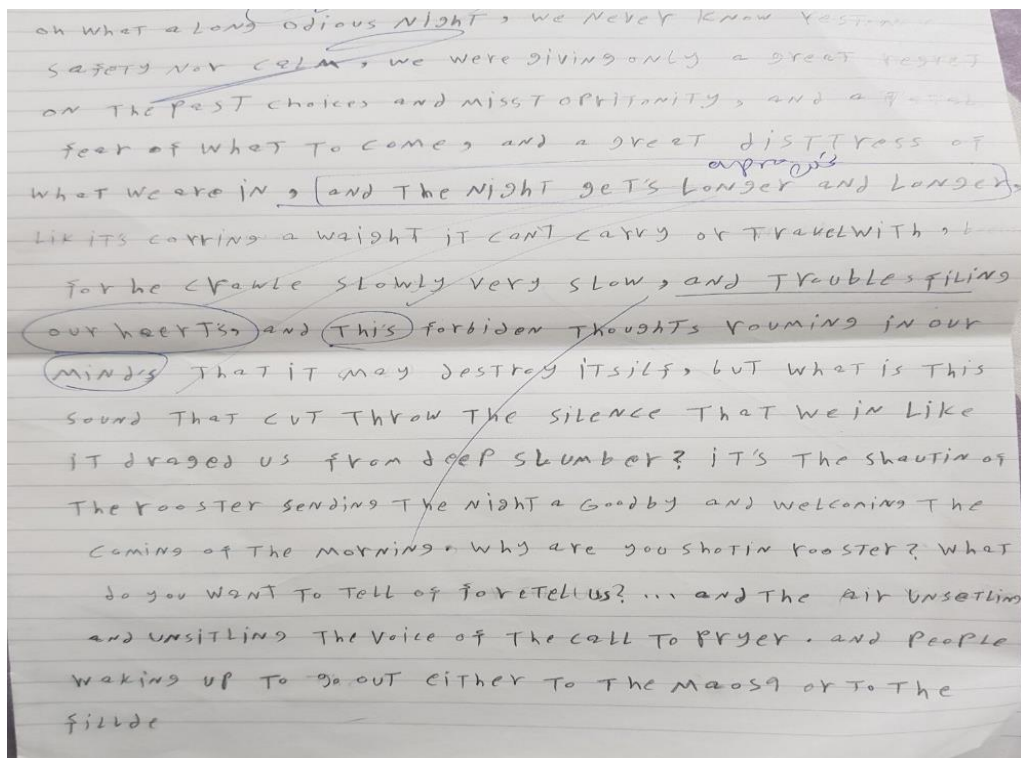 oh what a Long odious Night, we Never know rest nor
safety Nor caLM, we were giving only a great regret
on The past choices and misst opritonity, and a
fear of what To come, and a great disttress of
aproces
what we are in, (and The Night get's Longer and Longer),
Lik iTs carring a waight iT can'T carry or TraveLwith,
for he crawle sLowLy very sLow, and TroubLes filing
our heerTs, and This forbiden ThoughTs rouming in our
Mind's ThaT iT may destroy iTsilf, buT whaT is This
sound ThaT cuT Throw The siLence ThaT we in Like
iT draged us from deep sLumber? iT's The shautin of
The rooster sending The Night a Goodby and weLconing The
Coming of The morning. why are you shotin rooster? whaT
do you want To TeLL of foreTeLL us? ... and The air UNseTLing
and UNsiTLing The voice of The caLL To pryer. and peopLe
waking up To go ouT eiTher To The Maosq or To The
fiLLde